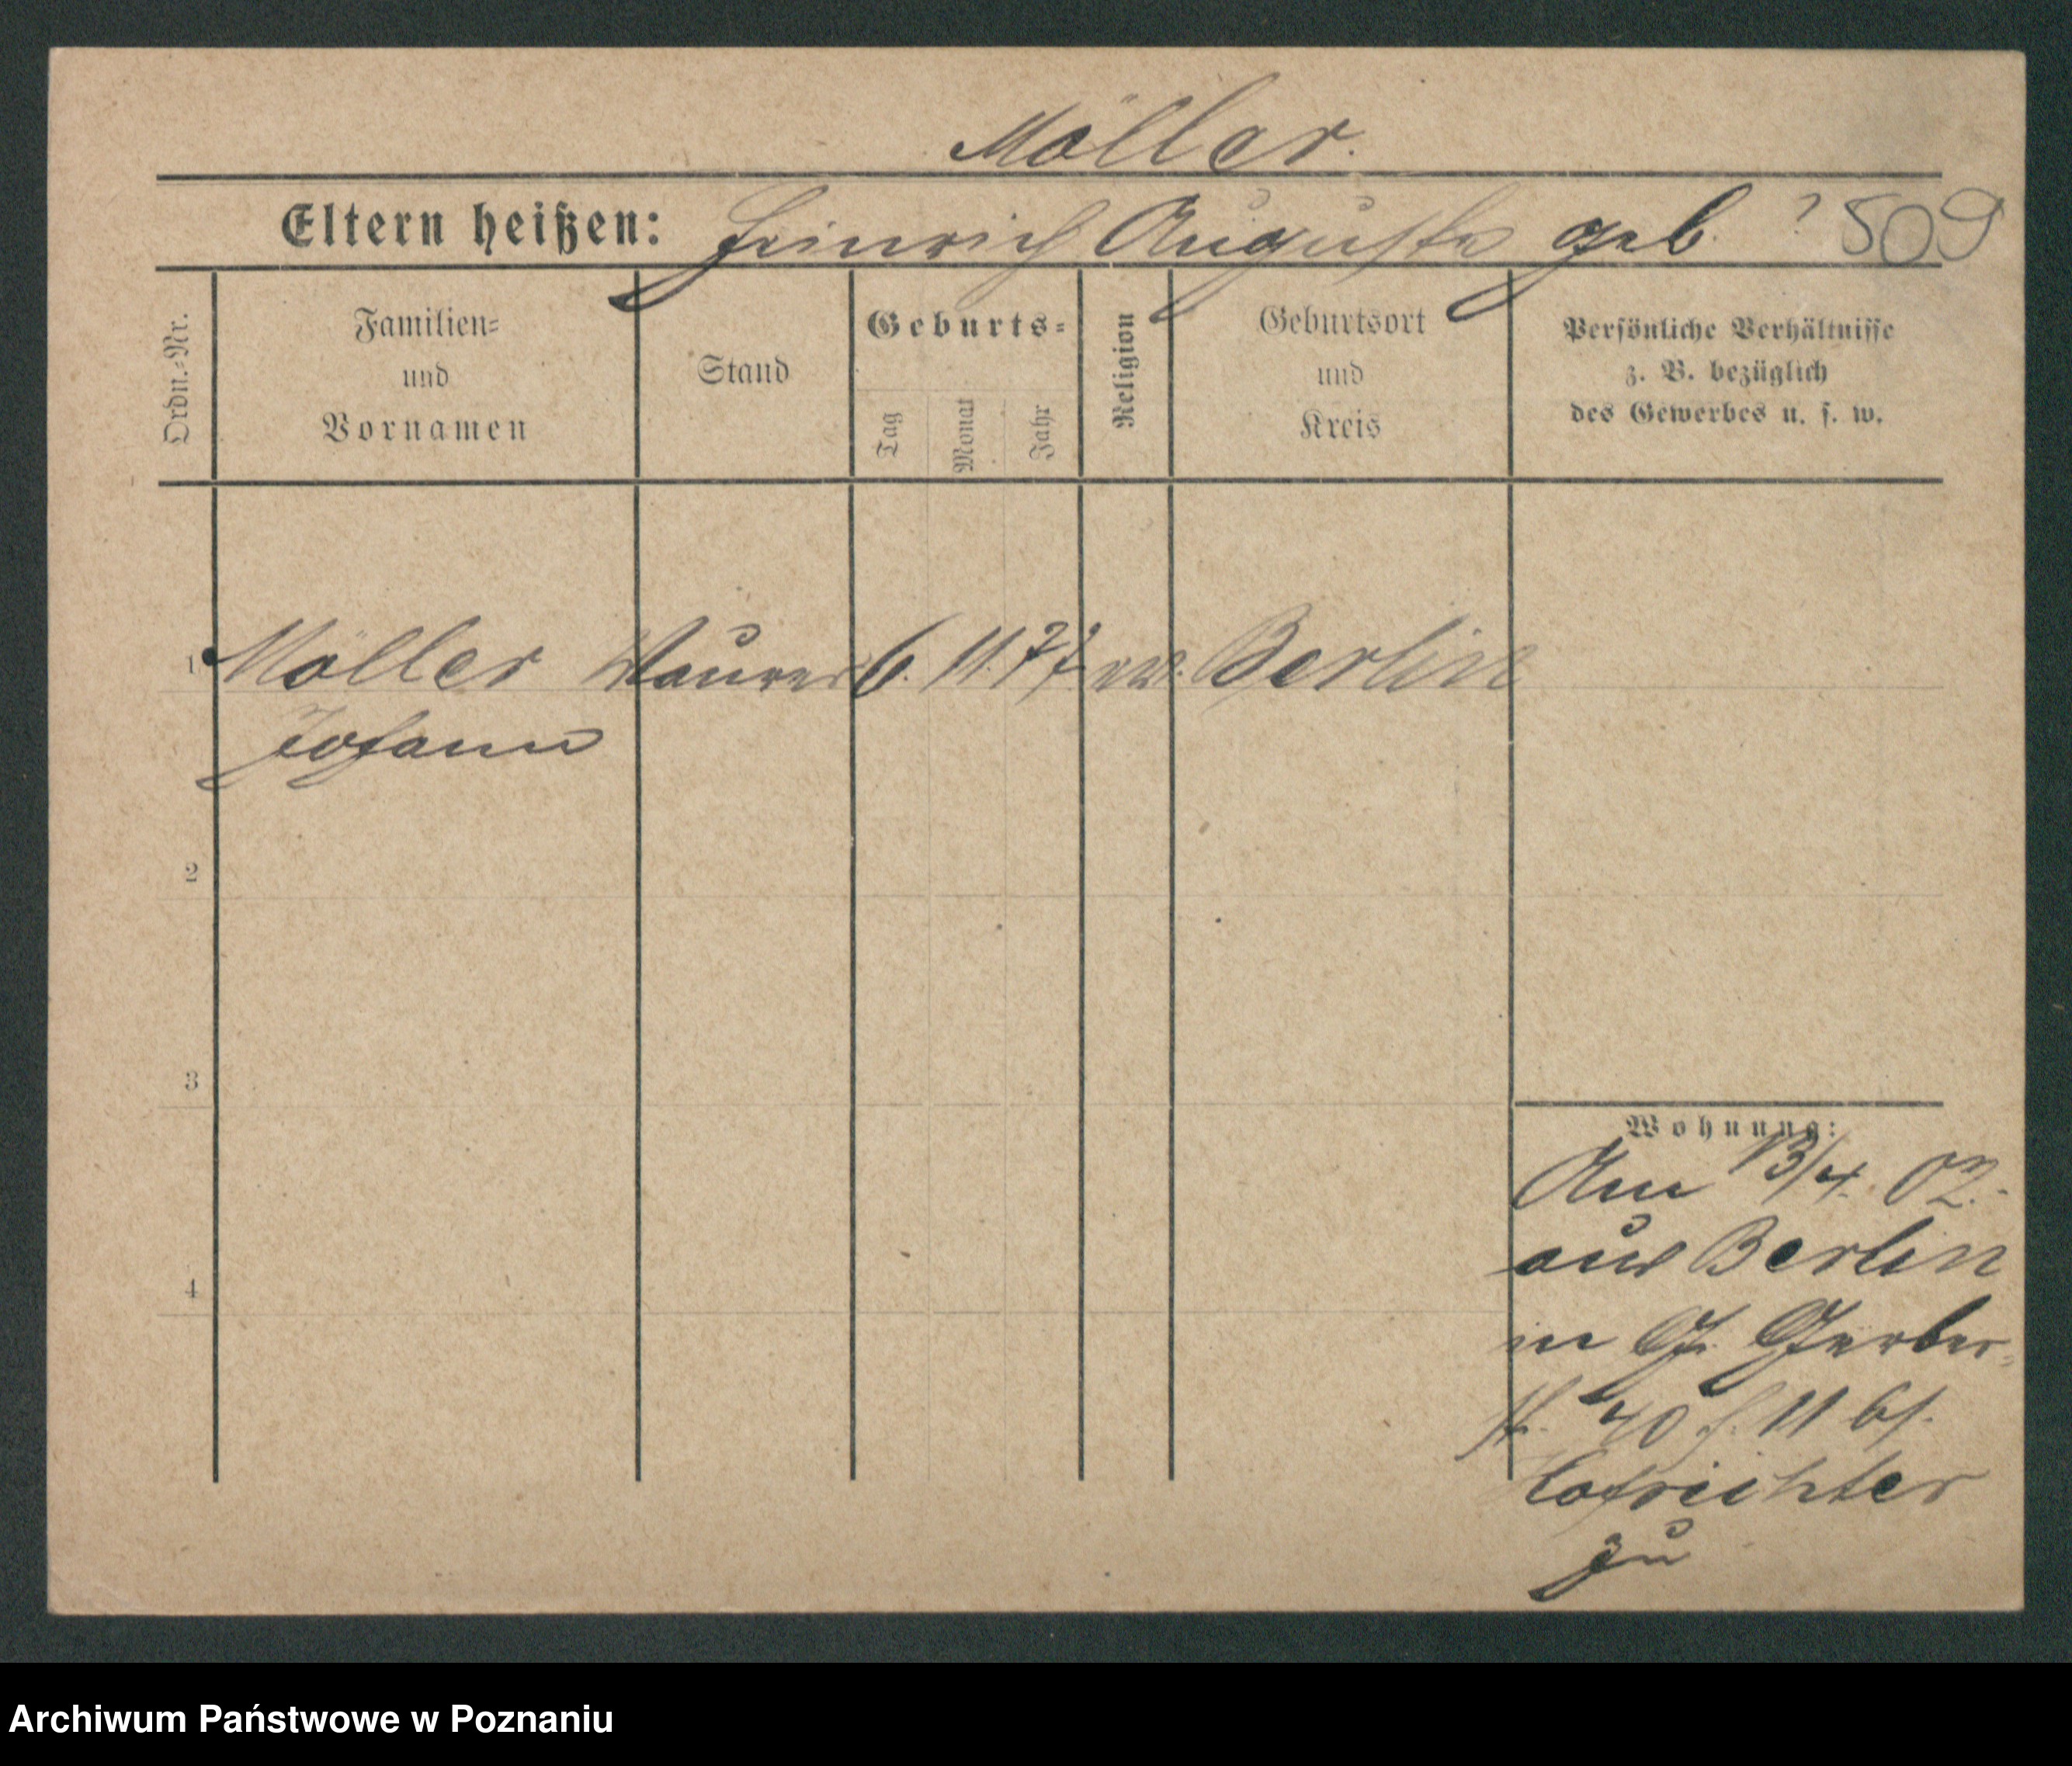 Möller.
Eltern heißen: Heinrich Auguste geb. ? 509
Ordn.-Nr.
Familien-
und
Vornamen
Stand
Geburts-
Tag
Monat
Jahr
Religion
Geburtsort
und
Kreis
Persönliche Verhältnisse
z. B. bezüglich
des Gewerbes u. s. w.
1 Möller Maurer 6. 11. 77 ev. Berlin
Johann
2
3
4
Wohnung:
Am 13/4. 02.
aus Berlin
in Gr. Gerber-
st. 40 11 bs.
Hofrichter
zu
Archiwum Państwowe w Poznaniu